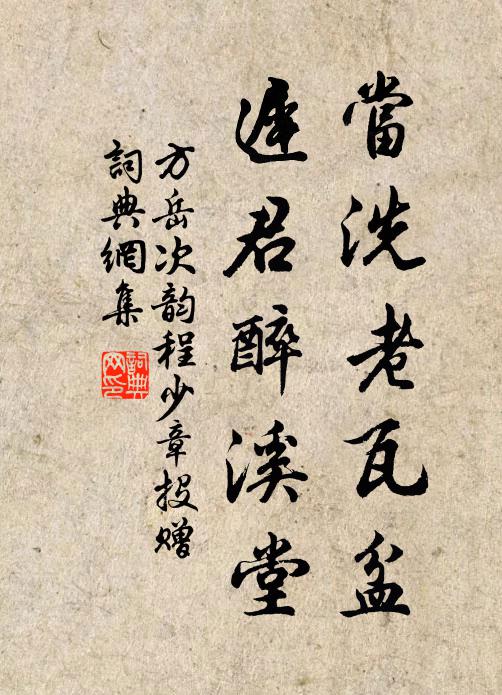 當洗老瓦盆
遲君醉溪堂
方岳次韵程少章投贈
詞典網集
詞典網印